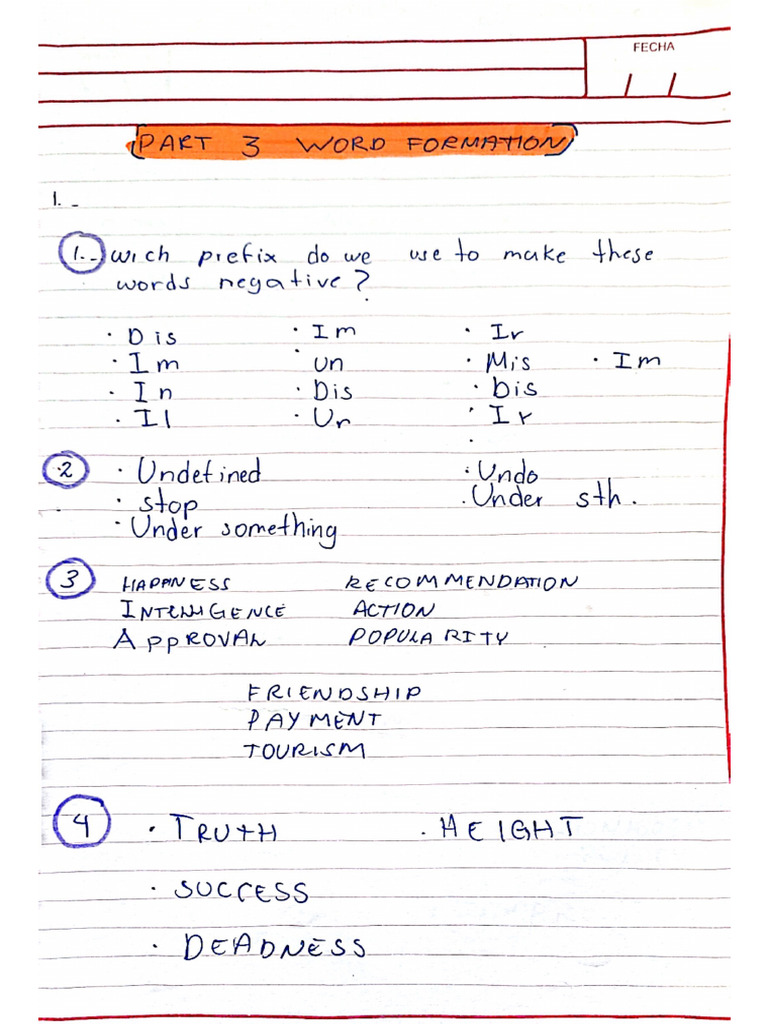 FECHA
/ /
PART 3 WORD FORMATION
1. -
1.- wich prefix do we use to make these
words negative?
· Dis · Im · Ir
· Im · un · Mis · Im
· In · Dis · Dis
· Il · Ur · Ir
·
2 · Undefined · Undo
· stop · Under sth.
· Under something
3 HAPPINESS RECOMMENDATION
INTELLIGENCE ACTION
APPROVAL POPULARITY
FRIENDSHIP
PAYMENT
TOURISM
4 · TRUTH · HEIGHT
· SUCCESS
· DEADNESS